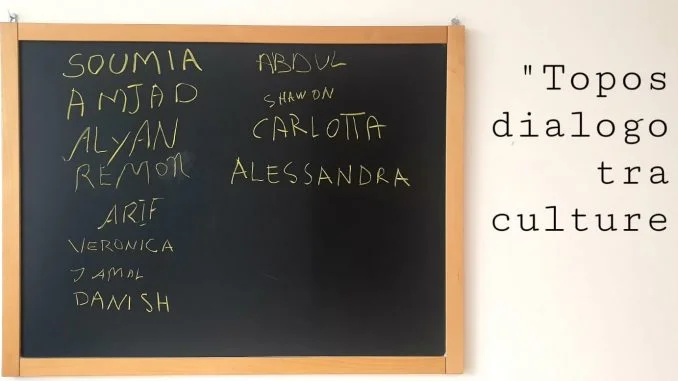 SOUMIA
AMJAD
ALYAN
REMON
ARIF
VERONICA
JAMAL
DANISH
ABDUL
SHAWON
CARLOTTA
ALESSANDRA
"Topos
dialogo
tra
culture